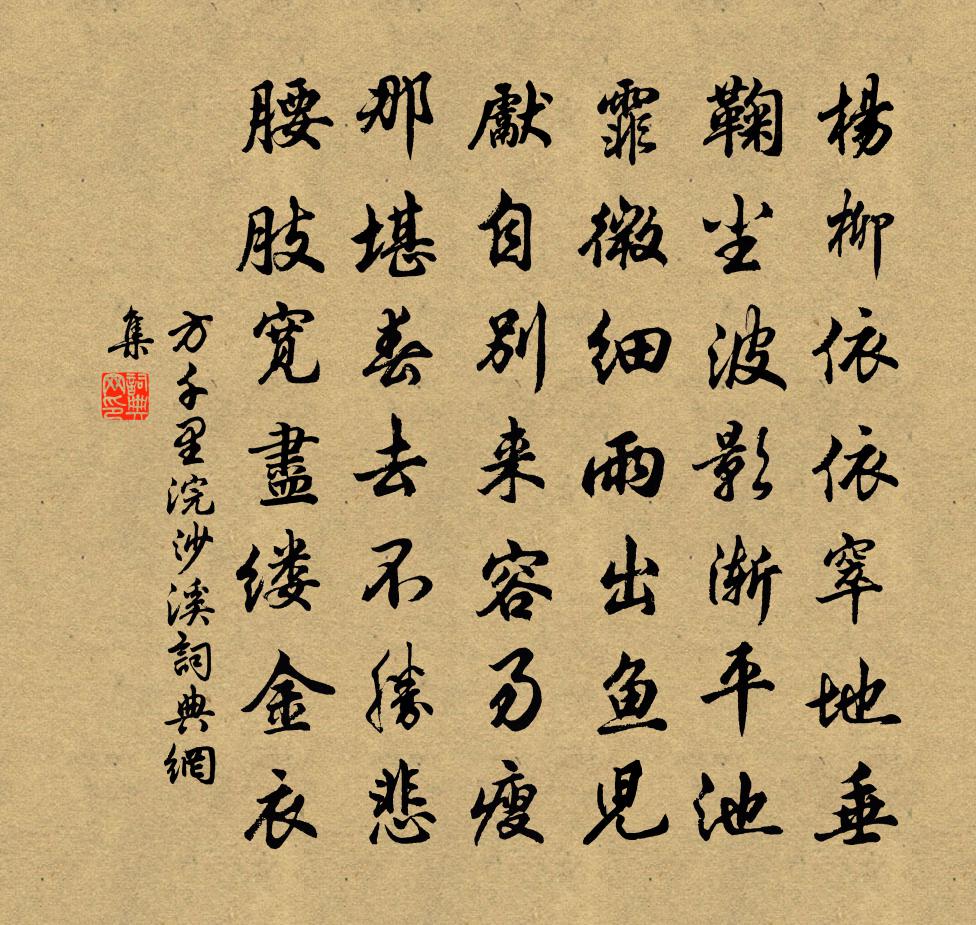 楊柳依依窣地垂
鞠尘波影漸平池
霏微细雨出鱼児
獻自别来容易瘦
那堪春去不勝悲
腰肢寬盡缕金衣
方千里浣沙溪詞典網
集
詞典网印